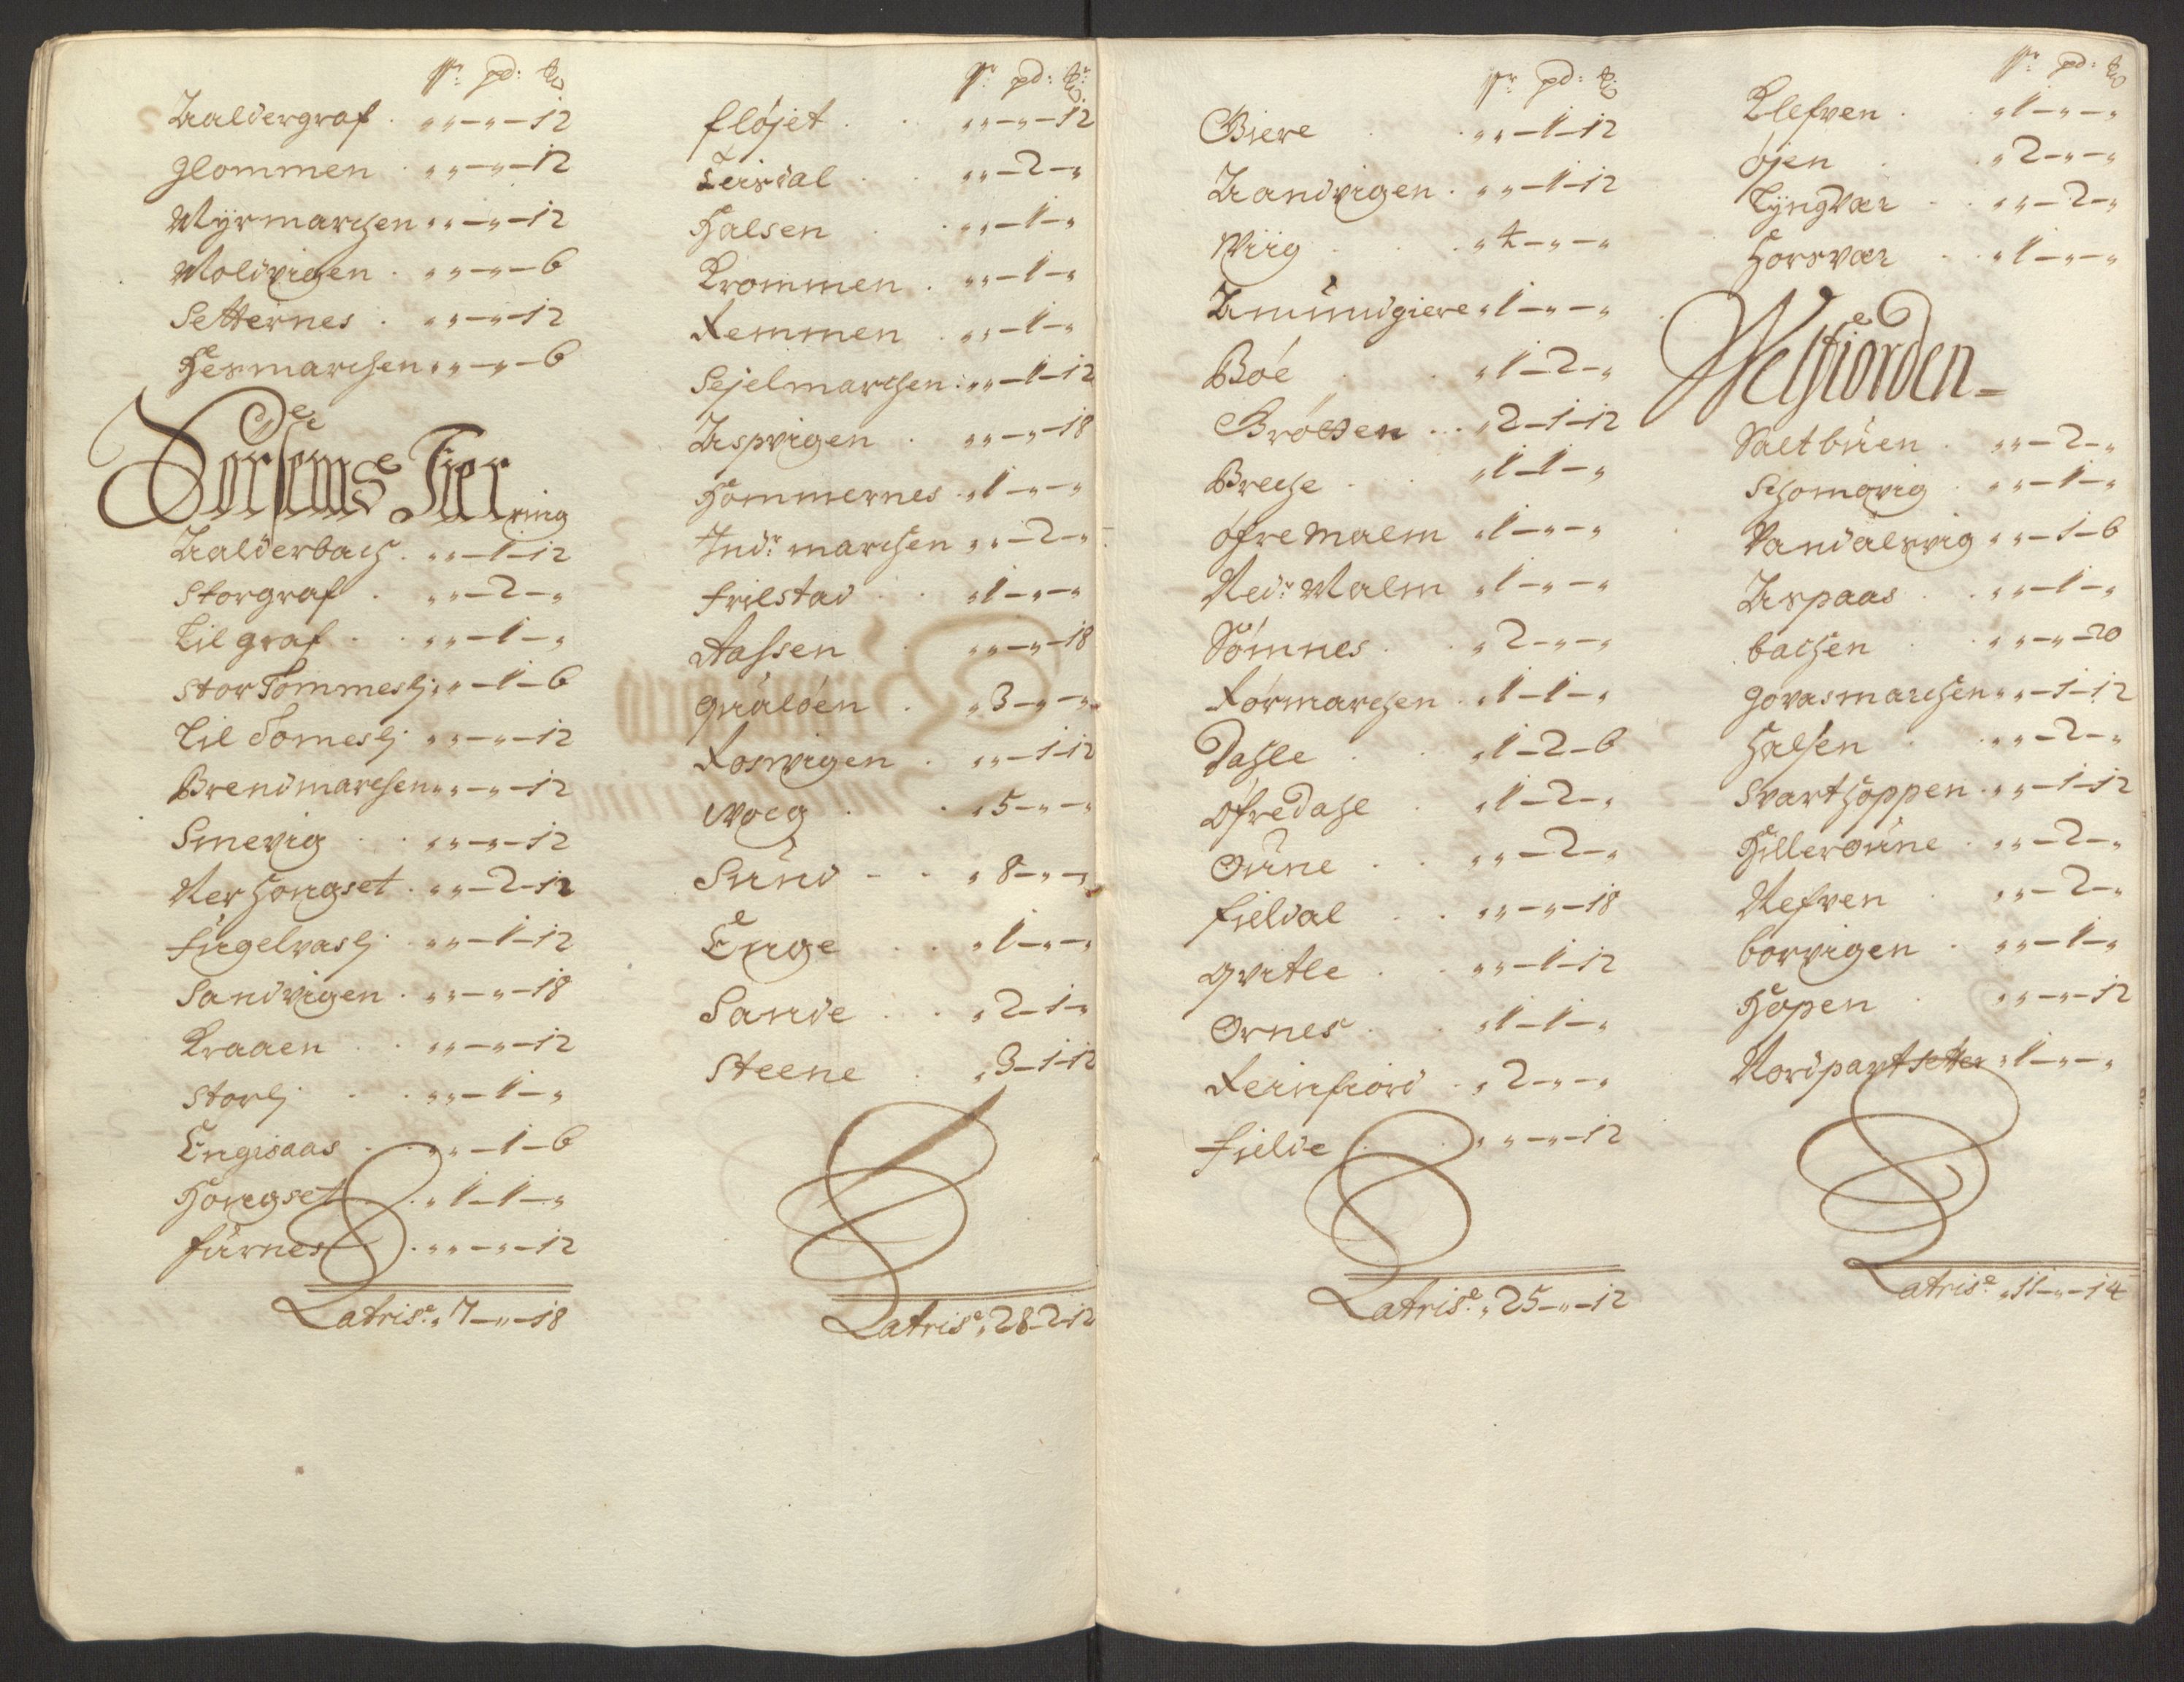 sp: pd: ℔
Aaldergraf . „ „ – „ – 12
Glommen . „ „ – „ – 12
Myrmarchen „ „ – „ – 12
Moldvigen . „ „ – „ – 6
Setternes . „ „ – „ – 12
Hesmarchen „ „ – „ – 6
Torgems Fier
ring
Aalderbach . „ „ – 1 – 12
Storgraf . „ „ – 2 – „
Lil graf . . „ „ – 1 – „
Stor Tommeslj „ „ – 1 – 6
Lil Tomeslj „ „ – „ – 12
Brendmarchen „ „ – „ – 12
Smevig . . „ „ – „ – 12
Ner Hongset . „ „ – 2 – 12
Fugelvaslj . „ „ – 1 – 12
Sandvigen . „ „ – „ – 18
Kraaen . . „ „ – „ – 12
Storlj . . „ „ – 1 – „
Engisaas . . „ „ – 1 – 6
Hongset . „ 1 – 1 – „
Furnes . „ „ – „ – 12
Latris: „ 7 – „ – 18
sp: pd: ℔
Fløjet . . „ „ – „ – 12
Leirdal . . „ „ – 2 – „
Halsen . . „ „ – 1 – „
Krommen . „ „ – 1 – „
Remmen . „ „ – 1 – „
Sejelmarchen . „ „ – 1 – 12
Aspvigen . „ „ – „ – 18
Hommernes . „ 1 – „ – „
Indr: marchen „ „ – 2 – „
Frilstad . . „ 1 – „ – „
Aassen . „ „ – „ – 18
Qualøen . „ 3 – „ – „
Rosvigen . „ „ – 1 – 12
Woeg . . „ 5 – „ – „
Sund - - „ 8 – „ – „
Enge . . „ 1 – „ – „
Sande . . „ 2 – 1 – „
Steene . „ 3 – 1 – 12
Latris: „ 28 – 2 – 12
sp: pd: ℔
Biere . „ „ – 1 – 12
Aandvigen . „ „ – 1 – 12
Wiig . . „ 4 – „ – „
Amundgiere „ 1 – „ – „
Bøe . „ 1 – 2 – „
Brøcsen . . „ 2 – 1 – 12
Breche . . „ 1 – 1 – „
Øfre Malm „ 1 – „ – „
Nedr: Malm „ 1 – „ – „
Sømnes . . „ 2 – „ – „
Rørmarchen . „ 1 – 1 – „
Dahle . . „ 1 – 2 – 6
Øfre Dahl . „ 1 – 2 – „
Oune . . „ „ – 2 – „
Fieldal . . „ „ – „ – 18
Qvitle . . „ „ – 1 – 12
Ornes . . „ 1 – 1 – „
Reinfiord . „ 2 – „ – „
Fielde . . „ „ – „ – 12
Latris: „ 25 – „ – 12
sp: pd: ℔
Klefven . . „ 1 – „ – „
Øjen . . „ 2 – „ – „
Lyngvær . . „ „ – 2 – „
Horsvær . . „ 1 – „ – „
Welfiorden –
Saltbuen . „ „ – 2 – „
Schomovig . „ „ – 1 – „
Vandalsvig „ „ – 1 – 6
Aspaas . . „ „ – 1 – „
bachen . „ „ – „ – 20
Govasmarchen „ „ – 1 – 12
Halsen . . „ „ – 2 – „
Svarthoppen . „ „ – 1 – 12
Hilleroune . „ „ – 2 – „
Nefven . „ „ – 2 – „
borvigen . „ „ – 1 – „
Hopen . „ „ – „ – 12
Nordpart „ 1 – „ – „
Latris: „ 11 – „ – 14